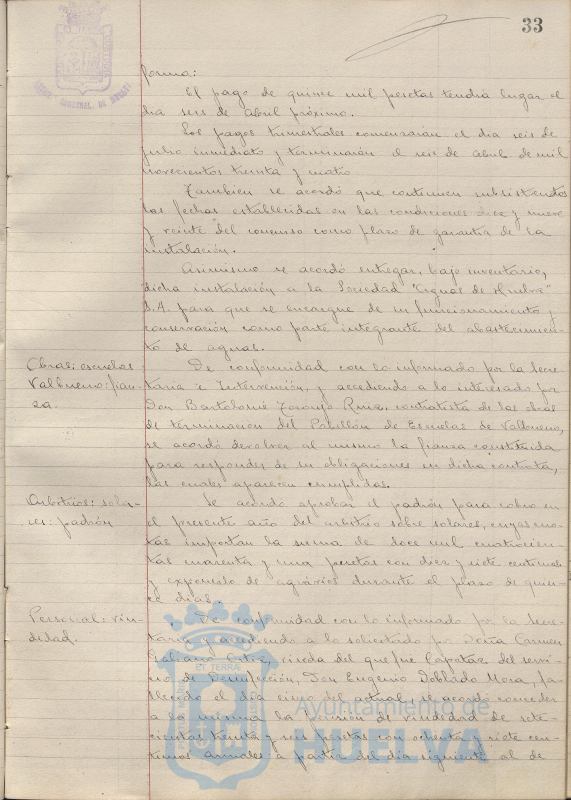 33
forma:
El pago de quince mil pesetas tendrá lugar el
dia seis de Abril próximo.
Los pagos trimestrales comenzarán el dia seis de
julio inmediato y terminarán el seis de Abril de mil
novecientos treinta y cuatro
Tambien se acordó que continuen subsistentes
las fechas establecidas en las condiciones diez y nueve
y veinte del concurso como plazo de garantía de la
instalación.
Asimismo se acordó entregar, bajo inventario,
dicha instalación a la Sociedad "Aguas de Huelva"
S.A. para que se encargue de su funcionamiento y
conservación como parte integrante del abastecimien-
to de aguas.
Obras: escuelas
Valbueno: fian-
za.
De conformidad con lo informado por la Secre-
taria e Intervención, y accediendo a lo interesado por
Don Bartolomé Toronjo Ruiz, contratista de las obras
de terminación del Pabellón de Escuelas de Valbueno,
se acordó devolver al mismo la fianza constituida
para responder de su obligaciones en dicha contrata,
las cuales aparecen cumplidas.
Arbitrios: sola-
res: padrón
Se acordó aprobar el padrón para cobro en
el presente año del arbitrio sobre solares, cuyas cuo-
tas importan la suma de doce mil cuatrocien-
tas cuarenta y una pesetas con diez y siete centimos
y exponerlo de agravios durante el plazo de quin-
ce dias.
Personal: viu-
dedad.
De conformidad con lo informado por la Secre-
taria y accediendo a lo solicitado por Doña Carmen
viuda del que fue Capataz del servi-
cio de Desinfección, Don Eugenio Doblado Mora, fa-
llecido el día cinco del actual, se acordó conceder
a la misma la pension de viudedad de sete-
cientas treinta y seis pesetas con ochenta y siete cen-
timos anuales a partir del dia siguiente al de
ET TERRA
Ayuntamiento de
HUELVA